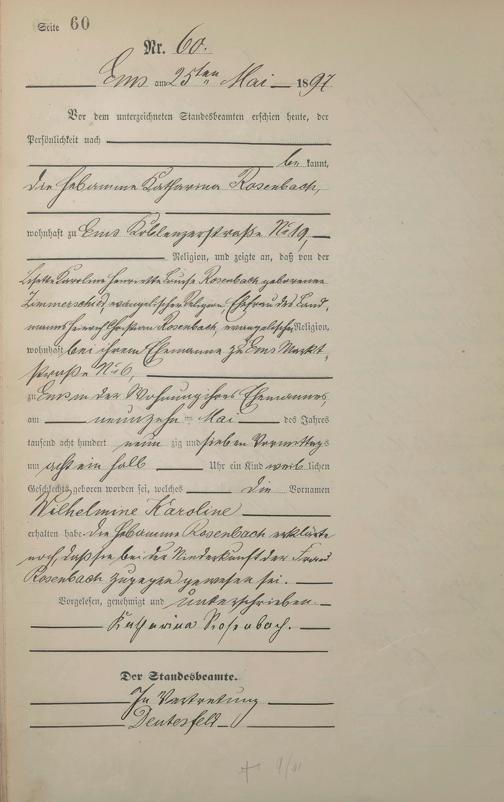 Seite 60
Nr. 60.
Ems am 25ten Mai 1897
Vor dem unterzeichneten Standesbeamten erschien heute, der
Persönlichkeit nach
be kannt,
die Hebamme Katharina Rosenbach,
wohnhaft zu Ems Koblenzerstraße No 19,
Religion, und zeigte an, daß von der
Lisette Karoline Henriette Louise Rosenbach geborenen
Zimmerschied, evangelischer Religion, Ehefrau des Land,
manns Heinrich Christian Rosenbach, evangelischer Religion,
wohnhaft bei ihrem Ehemanne zu Ems Markt,
straße No 6,
zu Ems in der Wohnung ihres Ehemannes
am neunzehn = Mai des Jahres
tausend acht hundert neun zig und sieben Vormittags
um acht ein halb Uhr ein Kind weib lichen
Geschlechts geboren worden sei, welches die Vornamen
Wilhelmine Karoline
erhalten habe. Die Hebamme Rosenbach erklärte
noch, daß sie bei der Niederkunft der Frau
Rosenbach zugegen gewesen sei.
Vorgelesen, genehmigt und unterschrieben.
Katharina Rosenbach.
Der Standesbeamte.
In Vertretung
Deutesfeld